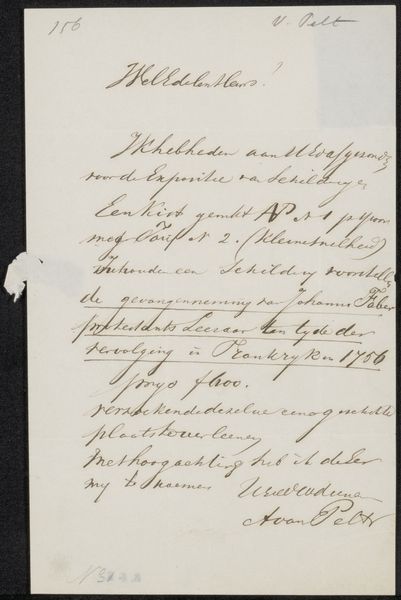 156
V. Pelt
WelEdelen Heer!
Ik heb heden aan U Ed afgezonden
voor de Expositie van Schilderyen
Een Kist gemkt AP N 1 p spoor
N 2. (kleine snelheid)
Inhouden een Schildery voorstellen
de gevangenneming van Johannes Faber
protestants Leeraar ten tyde der
vervolging in Frankryk en 1756
prys f 600.
verzoekende dezelve eene geschikte
plaats te verleenen
Met hoogachting heb ik de Eer
my te noemen
UEd
A van Pelt